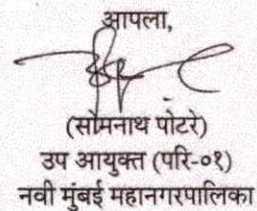 आपला,
(सोमनाथ पोटरे)
उप आयुक्त (परि-०१)
नवी मुंबई महानगरपालिका